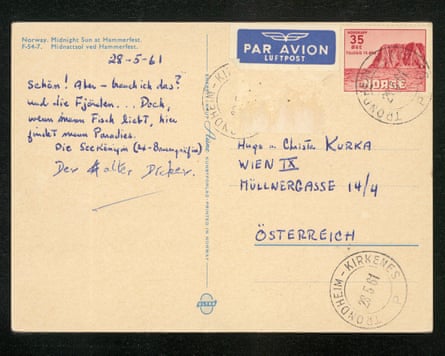 Norway. Midnight Sun at Hammerfest.
F-54-7. Midnattsol ved Hammerfest.
28-5-61
Schön! Aber – brauch ich das?
und die Fjorde... Doch,
wenn man Fisch liebt, hier
findet man Paradies.
Die Seekönigin
Der alter Dicker.
PAR AVION
LUFTPOST
NORDKAPP
35
ØRE
NORGE
TRONDHEIM-KIRKENES
TRONDHEIM-KIRKENES
Hugo u. Christa KURKA
WIEN IX
MÜLLNERGASSE 14/4
ÖSTERREICH
TRONDHEIM-KIRKENES
28.5.61
P
KUNSTFORLAG. PRINTED IN NORWAY